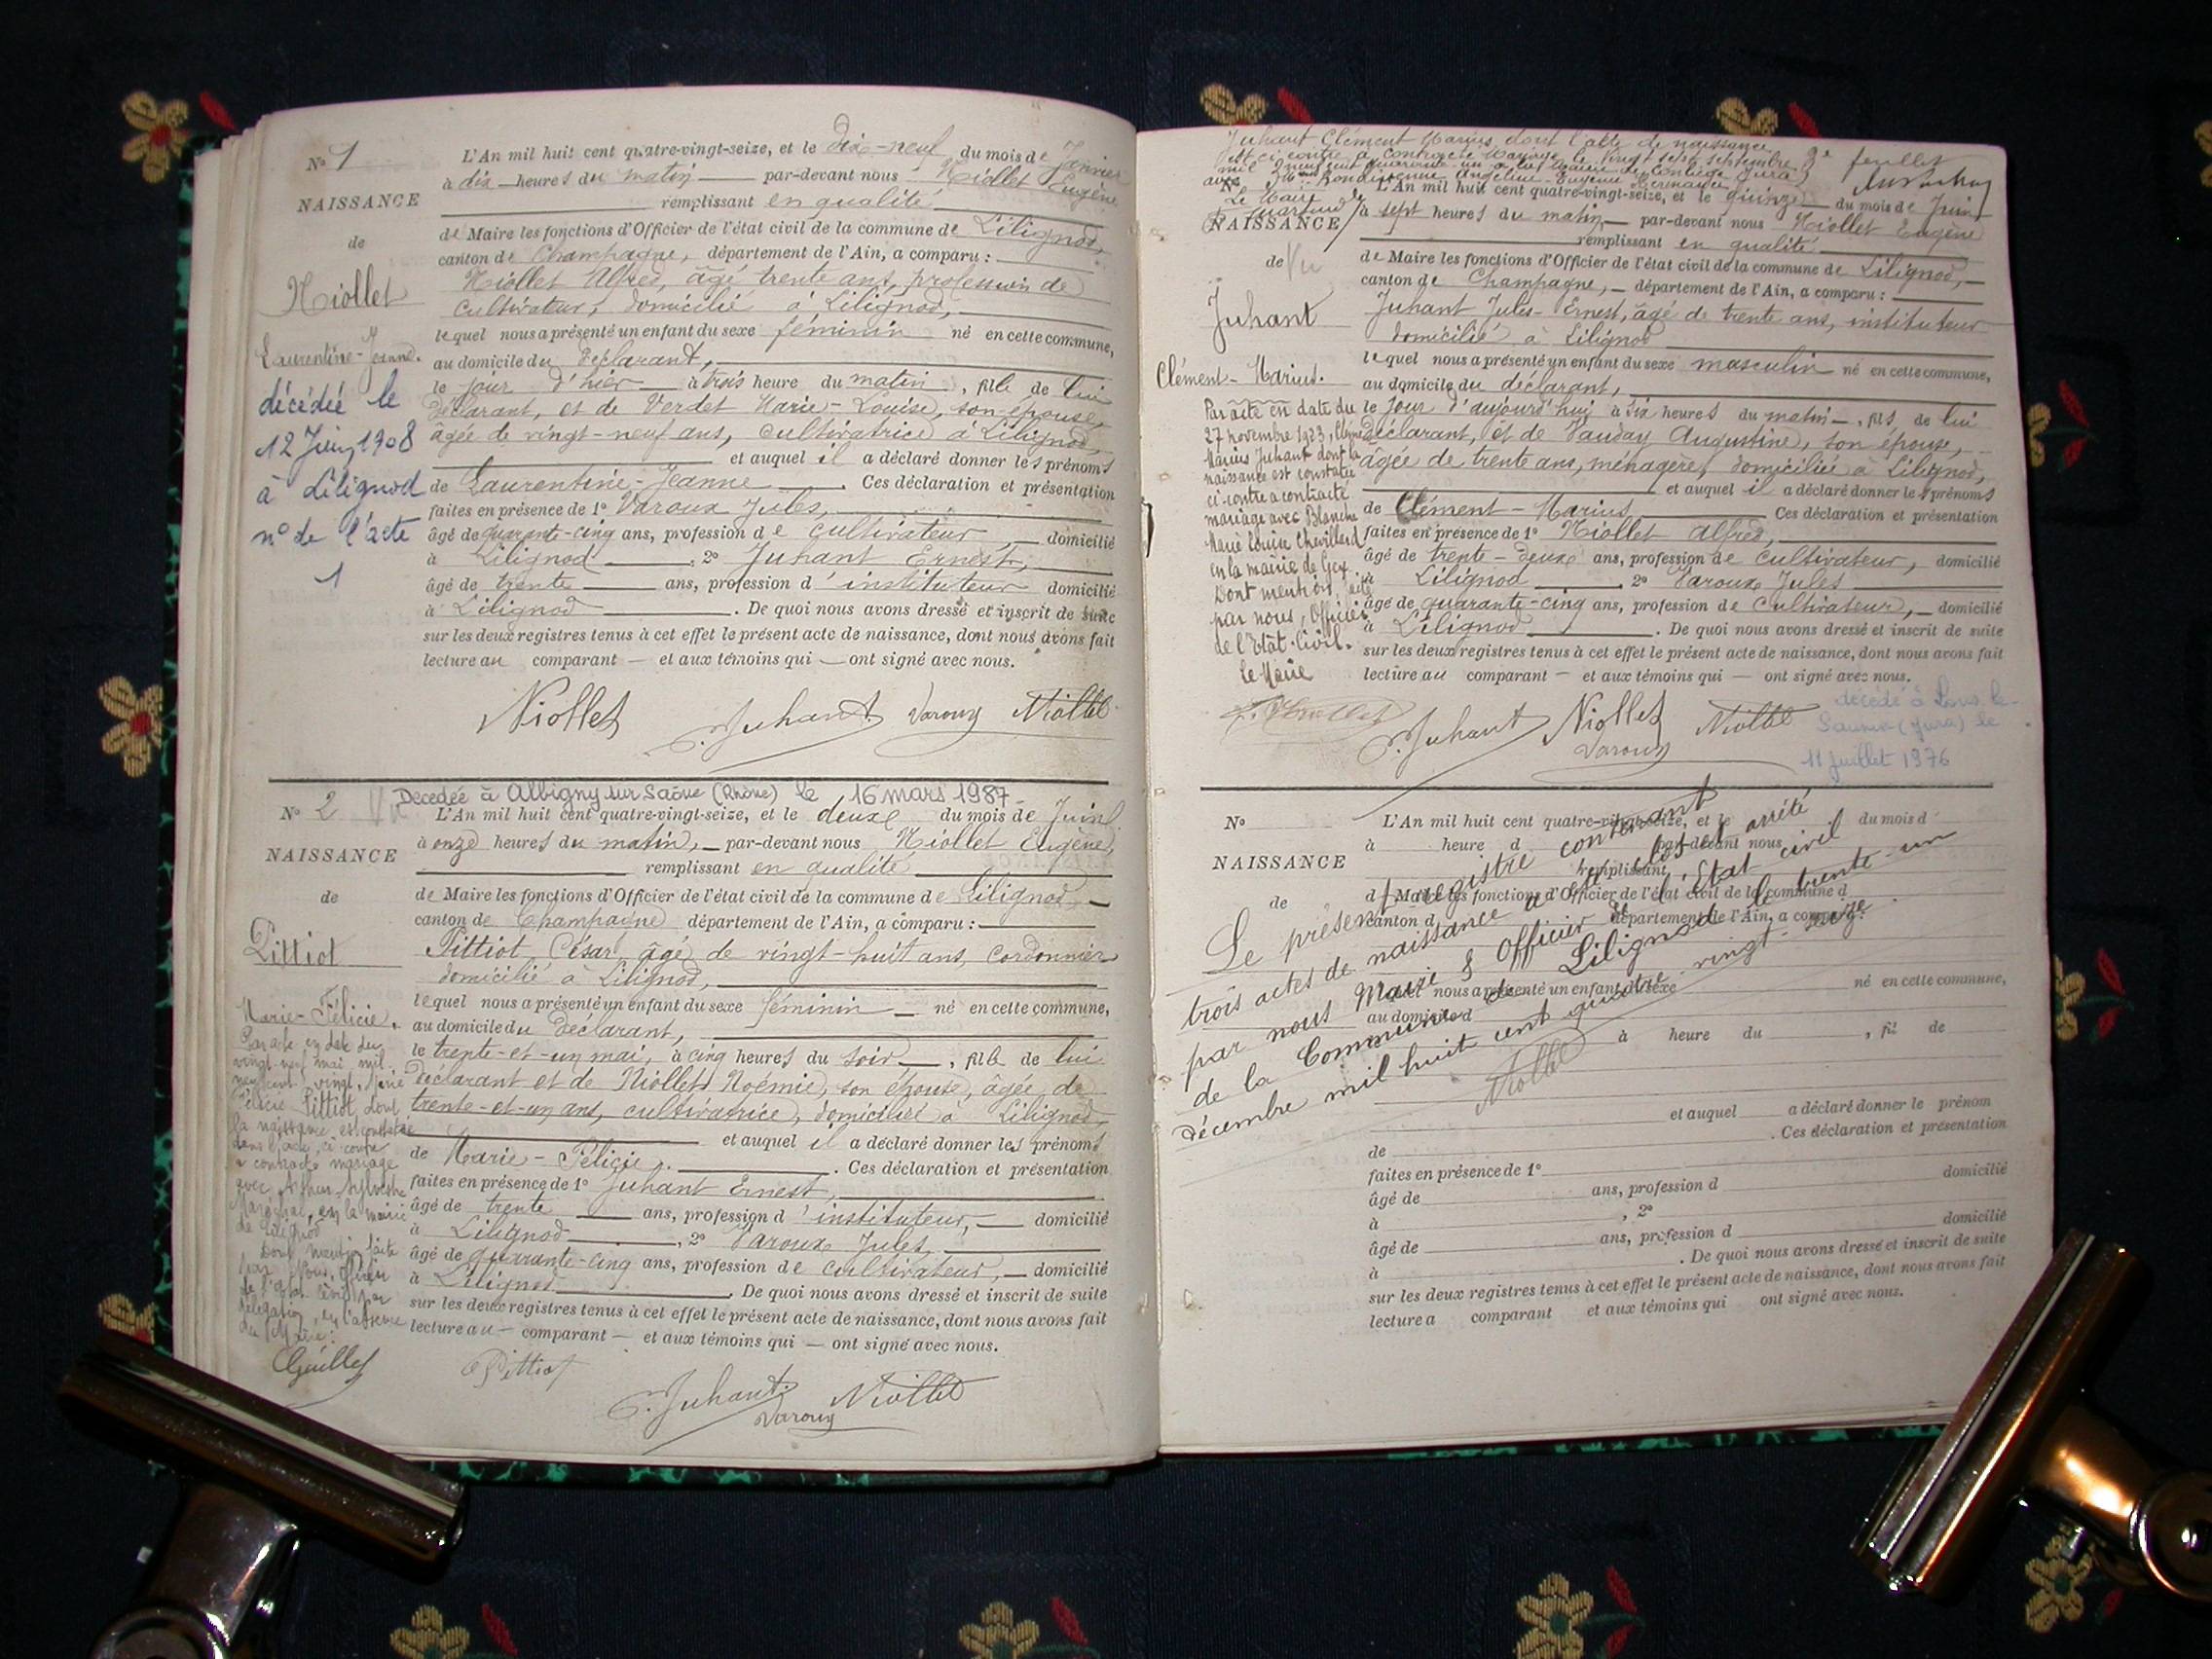 Nº 1
NAISSANCE
de
Niollet
Laurentine-Jeanne.
décédée le
12 Juin 1908
à Lilignod
nº de l'acte
1
L'An mil huit cent quatre-vingt-seize, et le dix-neuf du mois de Janvier
à dix heures du matin par-devant nous Niollet Eugène
remplissant en qualité
de Maire les fonctions d'Officier de l'état civil de la commune de Lilignod,
canton de Champagne, département de l'Ain, a comparu :
Niollet Alfred, âgé trente ans, profession de
cultivateur, domicilié à Lilignod,
lequel nous a présenté un enfant du sexe féminin né en cette commune,
au domicile du déclarant,
le jour d'hier à trois heure du matin, fille de lui
déclarant, et de Verdet Marie-Louise, son épouse,
âgée de vingt-neuf ans, cultivatrice à Lilignod,
et auquel il a déclaré donner les prénoms
de Laurentine-Jeanne. Ces déclaration et présentation
faites en présence de 1º Varoux Jules,
âgé de quarante-cinq ans, profession de cultivateur, domicilié
à Lilignod, 2º Juhant Ernest,
âgé de trente ans, profession d'instituteur domicilié
à Lilignod. De quoi nous avons dressé et inscrit de suite
sur les deux registres tenus à cet effet le présent acte de naissance, dont nous avons fait
lecture au comparant — et aux témoins qui — ont signé avec nous.
Niollet Juhant Varoux Niollet
Décédée à Albigny sur Saône (Rhône) le 16 mars 1987
Nº 2 Vu
NAISSANCE
de
Pittiot
Marie-Félicie.
Par acte en date du
vingt-neuf mai mil
neuf cent vingt, Marie
Félicie Pittiot, dont
la naissance est constatée
dans l'acte ci-contre
a contracté mariage
avec Arthur Sylvestre
en la mairie
de Lilignod
Dont mention faite
par Nous, Officier
de l'Etat Civil par
délégation, en l'absence
du Maire:
L'An mil huit cent quatre-vingt-seize, et le deux du mois de Juin
à onze heures du matin, — par-devant nous Niollet Eugène,
remplissant en qualité
de Maire les fonctions d'Officier de l'état civil de la commune de Lilignod, —
canton de Champagne département de l'Ain, a comparu :
Pittiot César âgé de vingt-huit ans, cordonnier
domicilié à Lilignod,
lequel nous a présenté un enfant du sexe féminin — né en cette commune,
au domicile du déclarant,
le trente-et-un mai, à cinq heures du soir, fille de lui
déclarant et de Niollet Noémie, son épouse, âgée de
trente-et-un ans, cultivatrice, domiciliée à Lilignod,
et auquel il a déclaré donner les prénoms
de Marie-Félicie. Ces déclaration et présentation
faites en présence de 1º Juhant Ernest,
âgé de trente ans, profession d'instituteur, — domicilié
à Lilignod, 2º Varoux Jules,
âgé de quarante-cinq ans, profession de cultivateur, — domicilié
à Lilignod. De quoi nous avons dressé et inscrit de suite
sur les deux registres tenus à cet effet le présent acte de naissance, dont nous avons fait
lecture au — comparant — et aux témoins qui — ont signé avec nous.
Pittiot
Juhant Varoux Niollet
Juhant Clément Marius, dont l'acte de naissance
est ci contre a contracté mariage le vingt sept septembre
mil neuf cent quarante un à la mairie de Conliège Jura
avec
Le Maire
3e feuillet
Nº
NAISSANCE
de Vu
Juhant
Clément-Marius.
Par acte en date du
27 novembre 1923, Clément
Marius Juhant dont la
naissance est constatée
ci-contre a contracté
mariage avec Blanche
Marie Louise Chevillard
en la mairie de Gex.
Dont mention faite
par nous, Officier
de l'Etat-Civil.
le Maire
L'An mil huit cent quatre-vingt-seize, et le quinze du mois de Juin
à sept heures du matin, — par-devant nous Niollet Eugène
remplissant en qualité
de Maire les fonctions d'Officier de l'état civil de la commune de Lilignod, —
canton de Champagne, — département de l'Ain, a comparu :
Juhant Jules-Ernest, âgé de trente ans, instituteur
domicilié à Lilignod
lequel nous a présenté un enfant du sexe masculin né en cette commune,
au domicile du déclarant,
le jour d'aujourd'hui à six heures du matin —, fils de lui
déclarant, et de Vauday Augustine, son épouse,
âgée de trente ans, ménagère, domiciliée à Lilignod,
et auquel il a déclaré donner les prénoms
de Clément-Marius, Ces déclaration et présentation
faites en présence de 1º Niollet Alfred,
âgé de trente-deux ans, profession de cultivateur, domicilié
à Lilignod, 2º Varoux Jules
âgé de quarante-cinq ans, profession de cultivateur, — domicilié
à Lilignod. De quoi nous avons dressé et inscrit de suite
sur les deux registres tenus à cet effet le présent acte de naissance, dont nous avons fait
lecture au comparant — et aux témoins qui — ont signé avec nous.
Juhant Niollet Varoux Niollet
décédé à Lons le
Saunier (Jura) le
11 juillet 1976
Nº
NAISSANCE
de
L'An mil huit cent quatre-vingt-seize, et le du mois d
à heure d par-devant nous
remplissant
d Maire les fonctions d'Officier de l'état civil de la commune d
canton d département de l'Ain, a comparu :
lequel nous a présenté un enfant du sexe né en cette commune,
au domicile d
à heure du , fil de
et auquel a déclaré donner le prénom
de . Ces déclaration et présentation
faites en présence de 1º
âgé de ans, profession d domicilié
à , 2º
âgé de ans, profession d domicilié
à . De quoi nous avons dressé et inscrit de suite
sur les deux registres tenus à cet effet le présent acte de naissance, dont nous avons fait
lecture a comparant et aux témoins qui ont signé avec nous.
Le présent registre contenant
trois actes de naissance a été clos et arrêté
par nous Maire & Officier de l'Etat civil
de la Commune de Lilignod le trente-un
décembre mil huit cent quatre-vingt-seize
Niollet